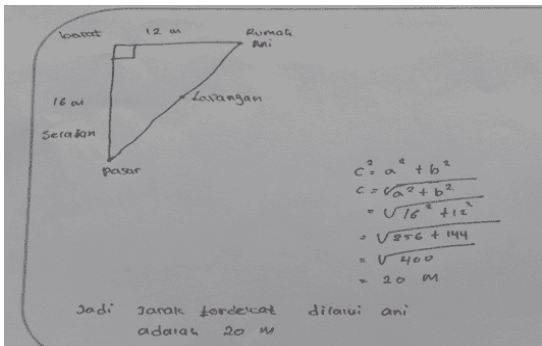 barat 12 m Rumah
Ani
16 m
Lapangan
Selatan
Pasar
c² = a² + b²
c = √a² + b²
= √16² + 12²
= √256 + 144
= √400
= 20 M
Jadi Jarak terdekat dilalui ani
adalah 20 M